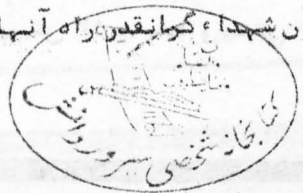 ن شهداء گرانقدر راه آنها
کتابخانه شخصی سرور دانش